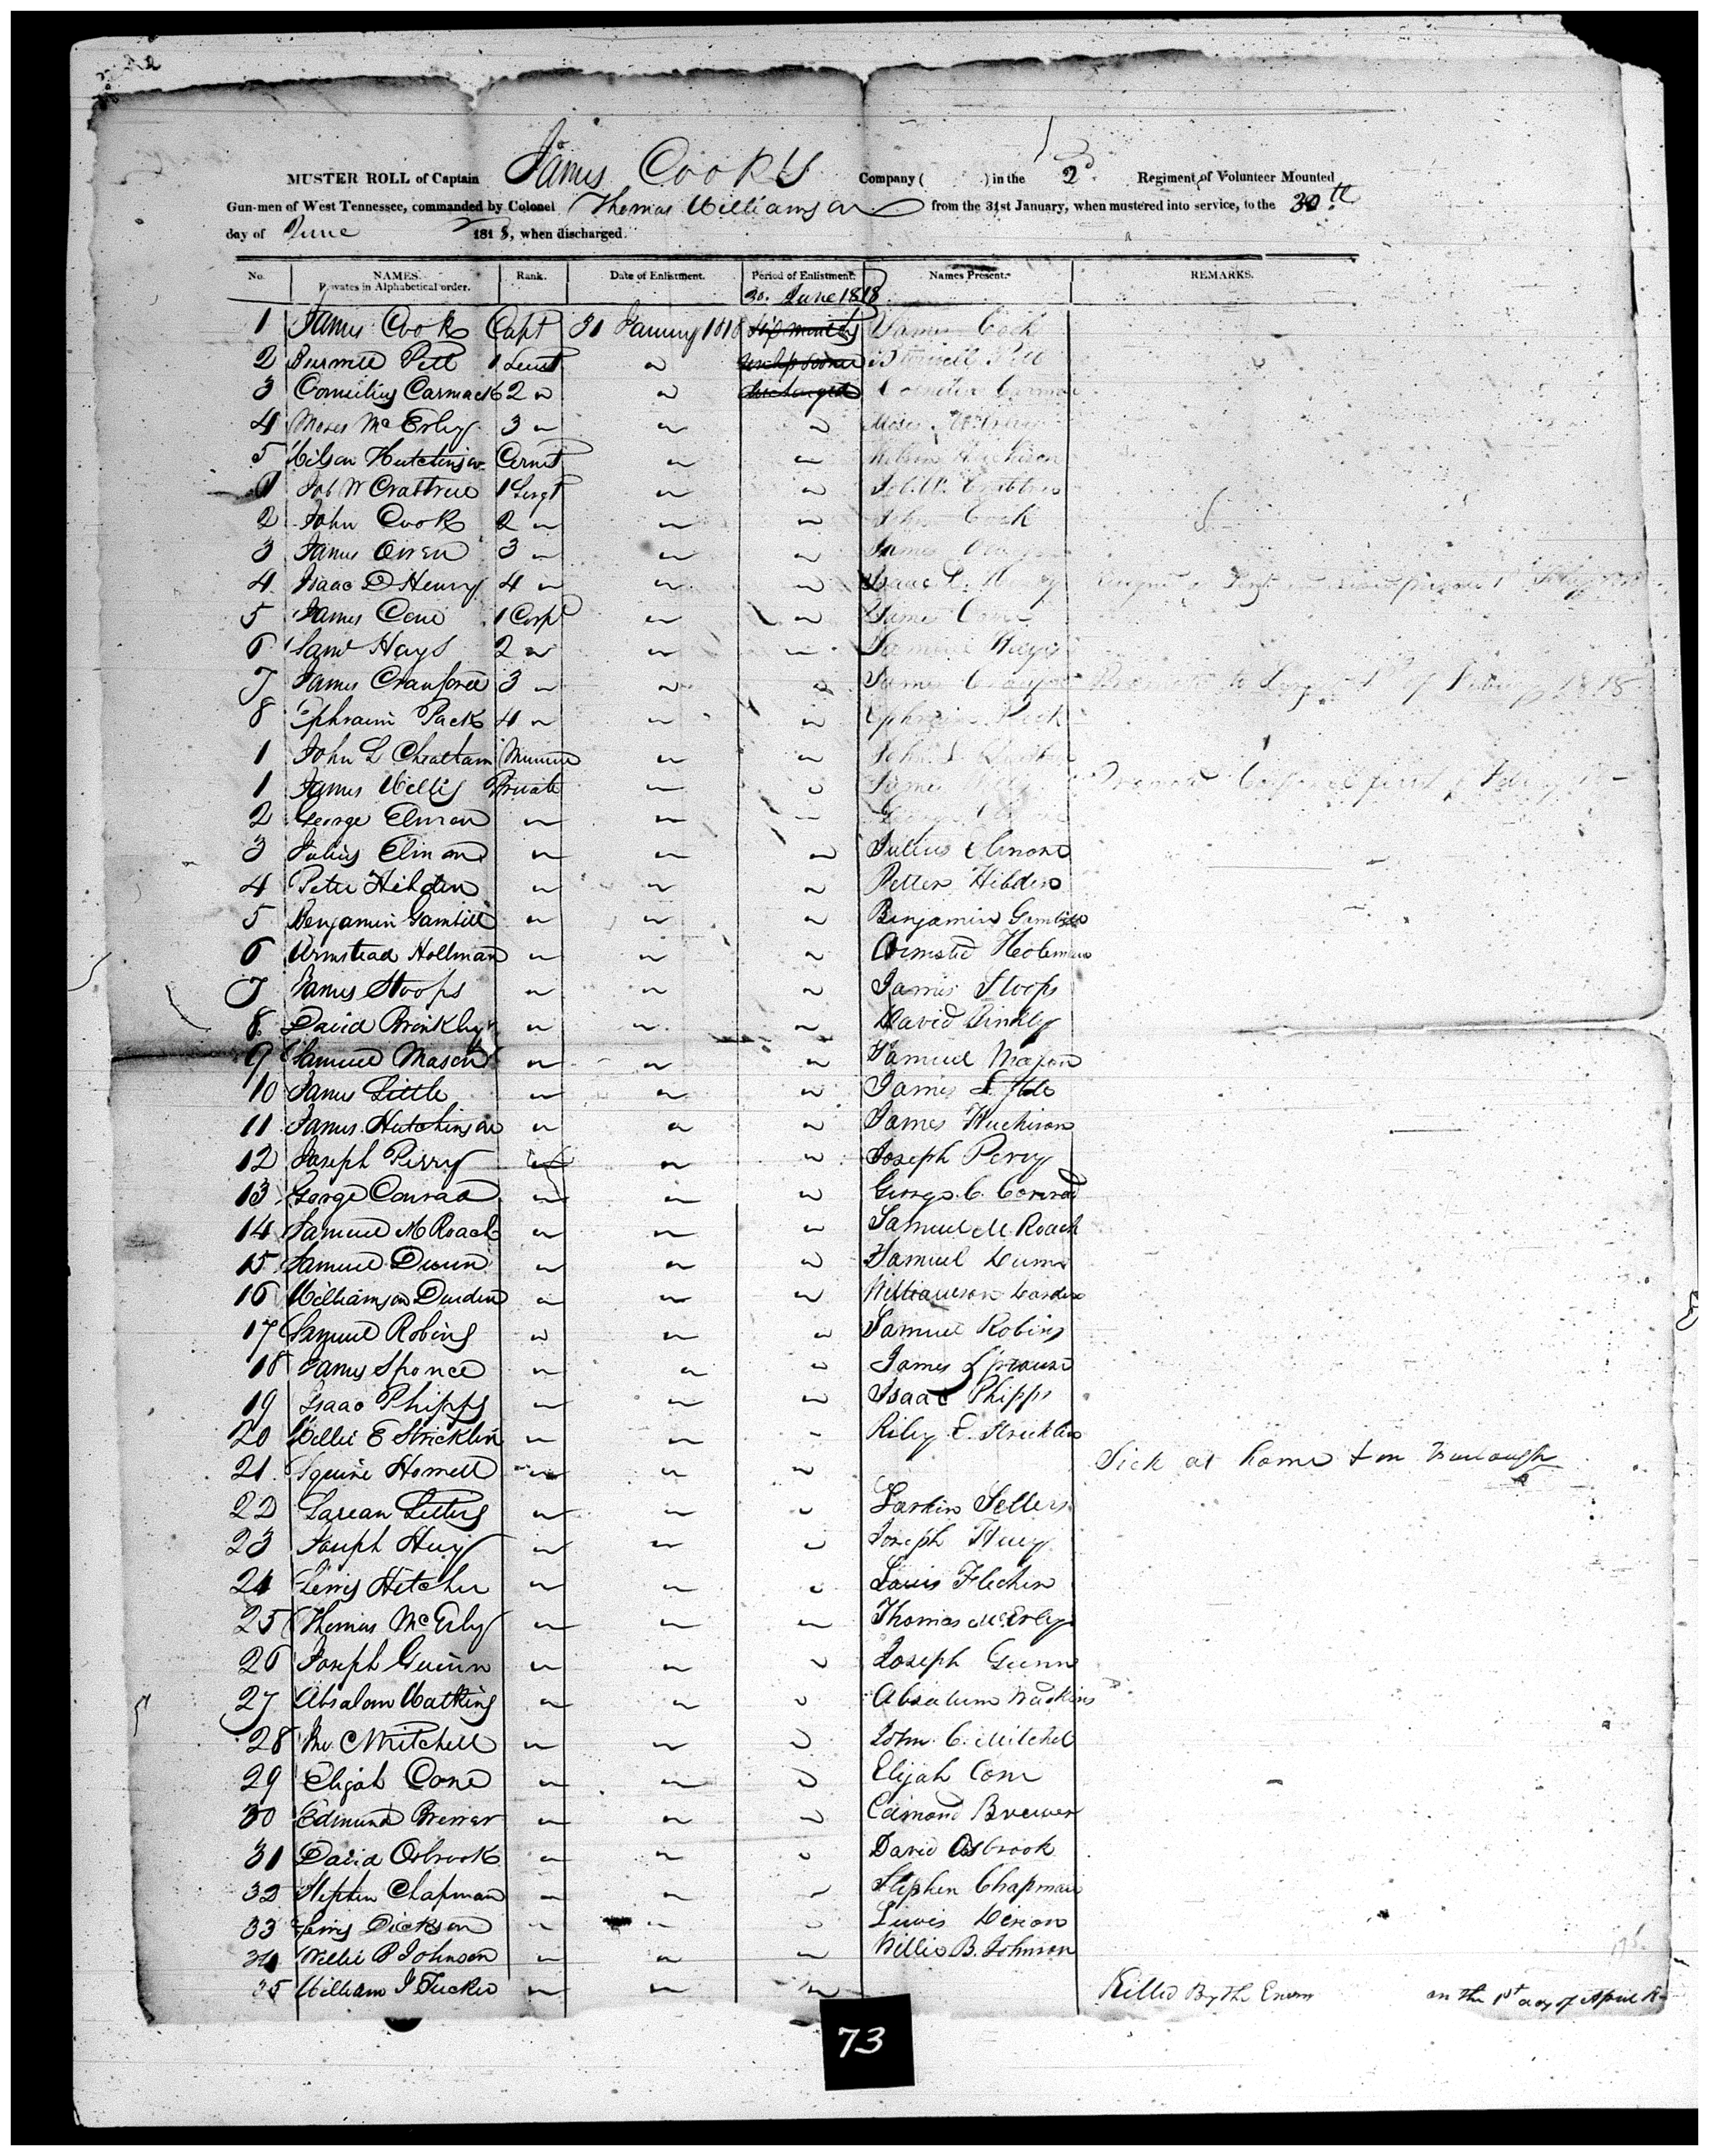 MUSTER ROLL of Captain James Cooks Company ( ) in the 2d Regiment of Volunteer Mounted
Gun-men of West Tennessee, commanded by Colonel Thomas Williamson from the 31st January, when mustered into service, to the 30th
day of June 1818, when discharged.
No. NAMES. Privates in Alphabetical order. Rank. Date of Enlistment. Period of Enlistment. Names Present. REMARKS.
30. June 1818
1 James Cook Capt 31 January 1818 six months James Cook
2 Burwell Pitt 1 Lieut " unless sooner Burwell Pitt
3 Cornelius Carmack 2 " " discharged Cornelius Carmac
4 Moses McErly 3 " " " Moses
5 Wilson Hutchinson Cornet " " Wilson Huchison
1 Job W Crabtree 1 Sergt " " Job W. Crabtree
2 John Cook 2 " " " John Cook
3 James Owen 3 " " " James
4 Isaac D Henry 4 " " " Isaac D. Henry
5 James Cone 1 Corpl " " James Cone
6 Saml Hays 2 " " " Samuel Hays
7 James Crauford 3 " " " James Promoted to Sergt 1st of February 1818
8 Ephraim Pack 4 " " " Ephraim Peck
1 John L Cheatham " " John L.
1 James Willis Private " " James Promoted Corporal first of Feby
2 George Elmon " " " George
3 Julius Elmon " " " Julius Elmone
4 Peter Hibden " " " Petter Hibden
5 Benjamin Gambill " " " Binjamin Gambill
6 Armstead Hollman " " " Armsted Holeman
7 James Stoops " " " James Stoops
8 David Brinkly " " " David Binkly
9 Samuel Mason " " " Samuel Mason
10 James Little " " " James Little
11 James Hutchinson " " " James Huchison
12 Joseph Perry " " " Joseph Pery
13 George Conrad " " " George C. Conrad
14 Samuel M Roach " " " Samuel M. Roach
15 Samuel Dunn " " " Samuel Dunn
16 Williamson Durdin " " " Williamson Dardin
17 Samuel Robins " " " Samuel Robins
18 James Sponce " " " James Sprouse
19 Isaac Phipps " " " Isaac Phipps
20 Willie E Stricklin " " " Riley E. Stricklin
21 Squire Hornell " " " Sick at home & on Furlough
22 Larean Litters " " " Larkin Sellers
23 Joseph Huy " " " Joseph Huey
24 Lewis Hitcher " " " Louis Flecher
25 Thomas McErly " " " Thomas McErly
26 Joseph Guinn " " " Joseph Gunn
27 Absalom Watkins " " " Absalum Wadkins
28 Jno. C Mitchell " " " John C. Mitchel
29 Elijah Cone " " " Elijah Cone
30 Edmund Brewer " " " Edmond Brewer
31 David Osbrook " " " David Osbrook
32 Stephen Chapman " " " Stephen Chapman
33 Lewis Dickson " " " Lewis Dixon
34 Willie B Johnson " " " Willis B. Johnson
35 William J Tucker " " " Killed By the Enem on the 1st day of April
73